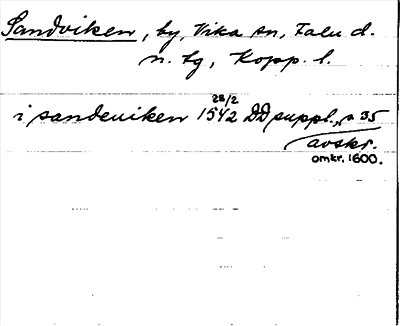 Sandviken, by, Vika sn, Falu d.
n. tg, Kopp. l.
i sandeuiken 1542 28/2 DD suppl., s 35
avskr.
omkr. 1600.